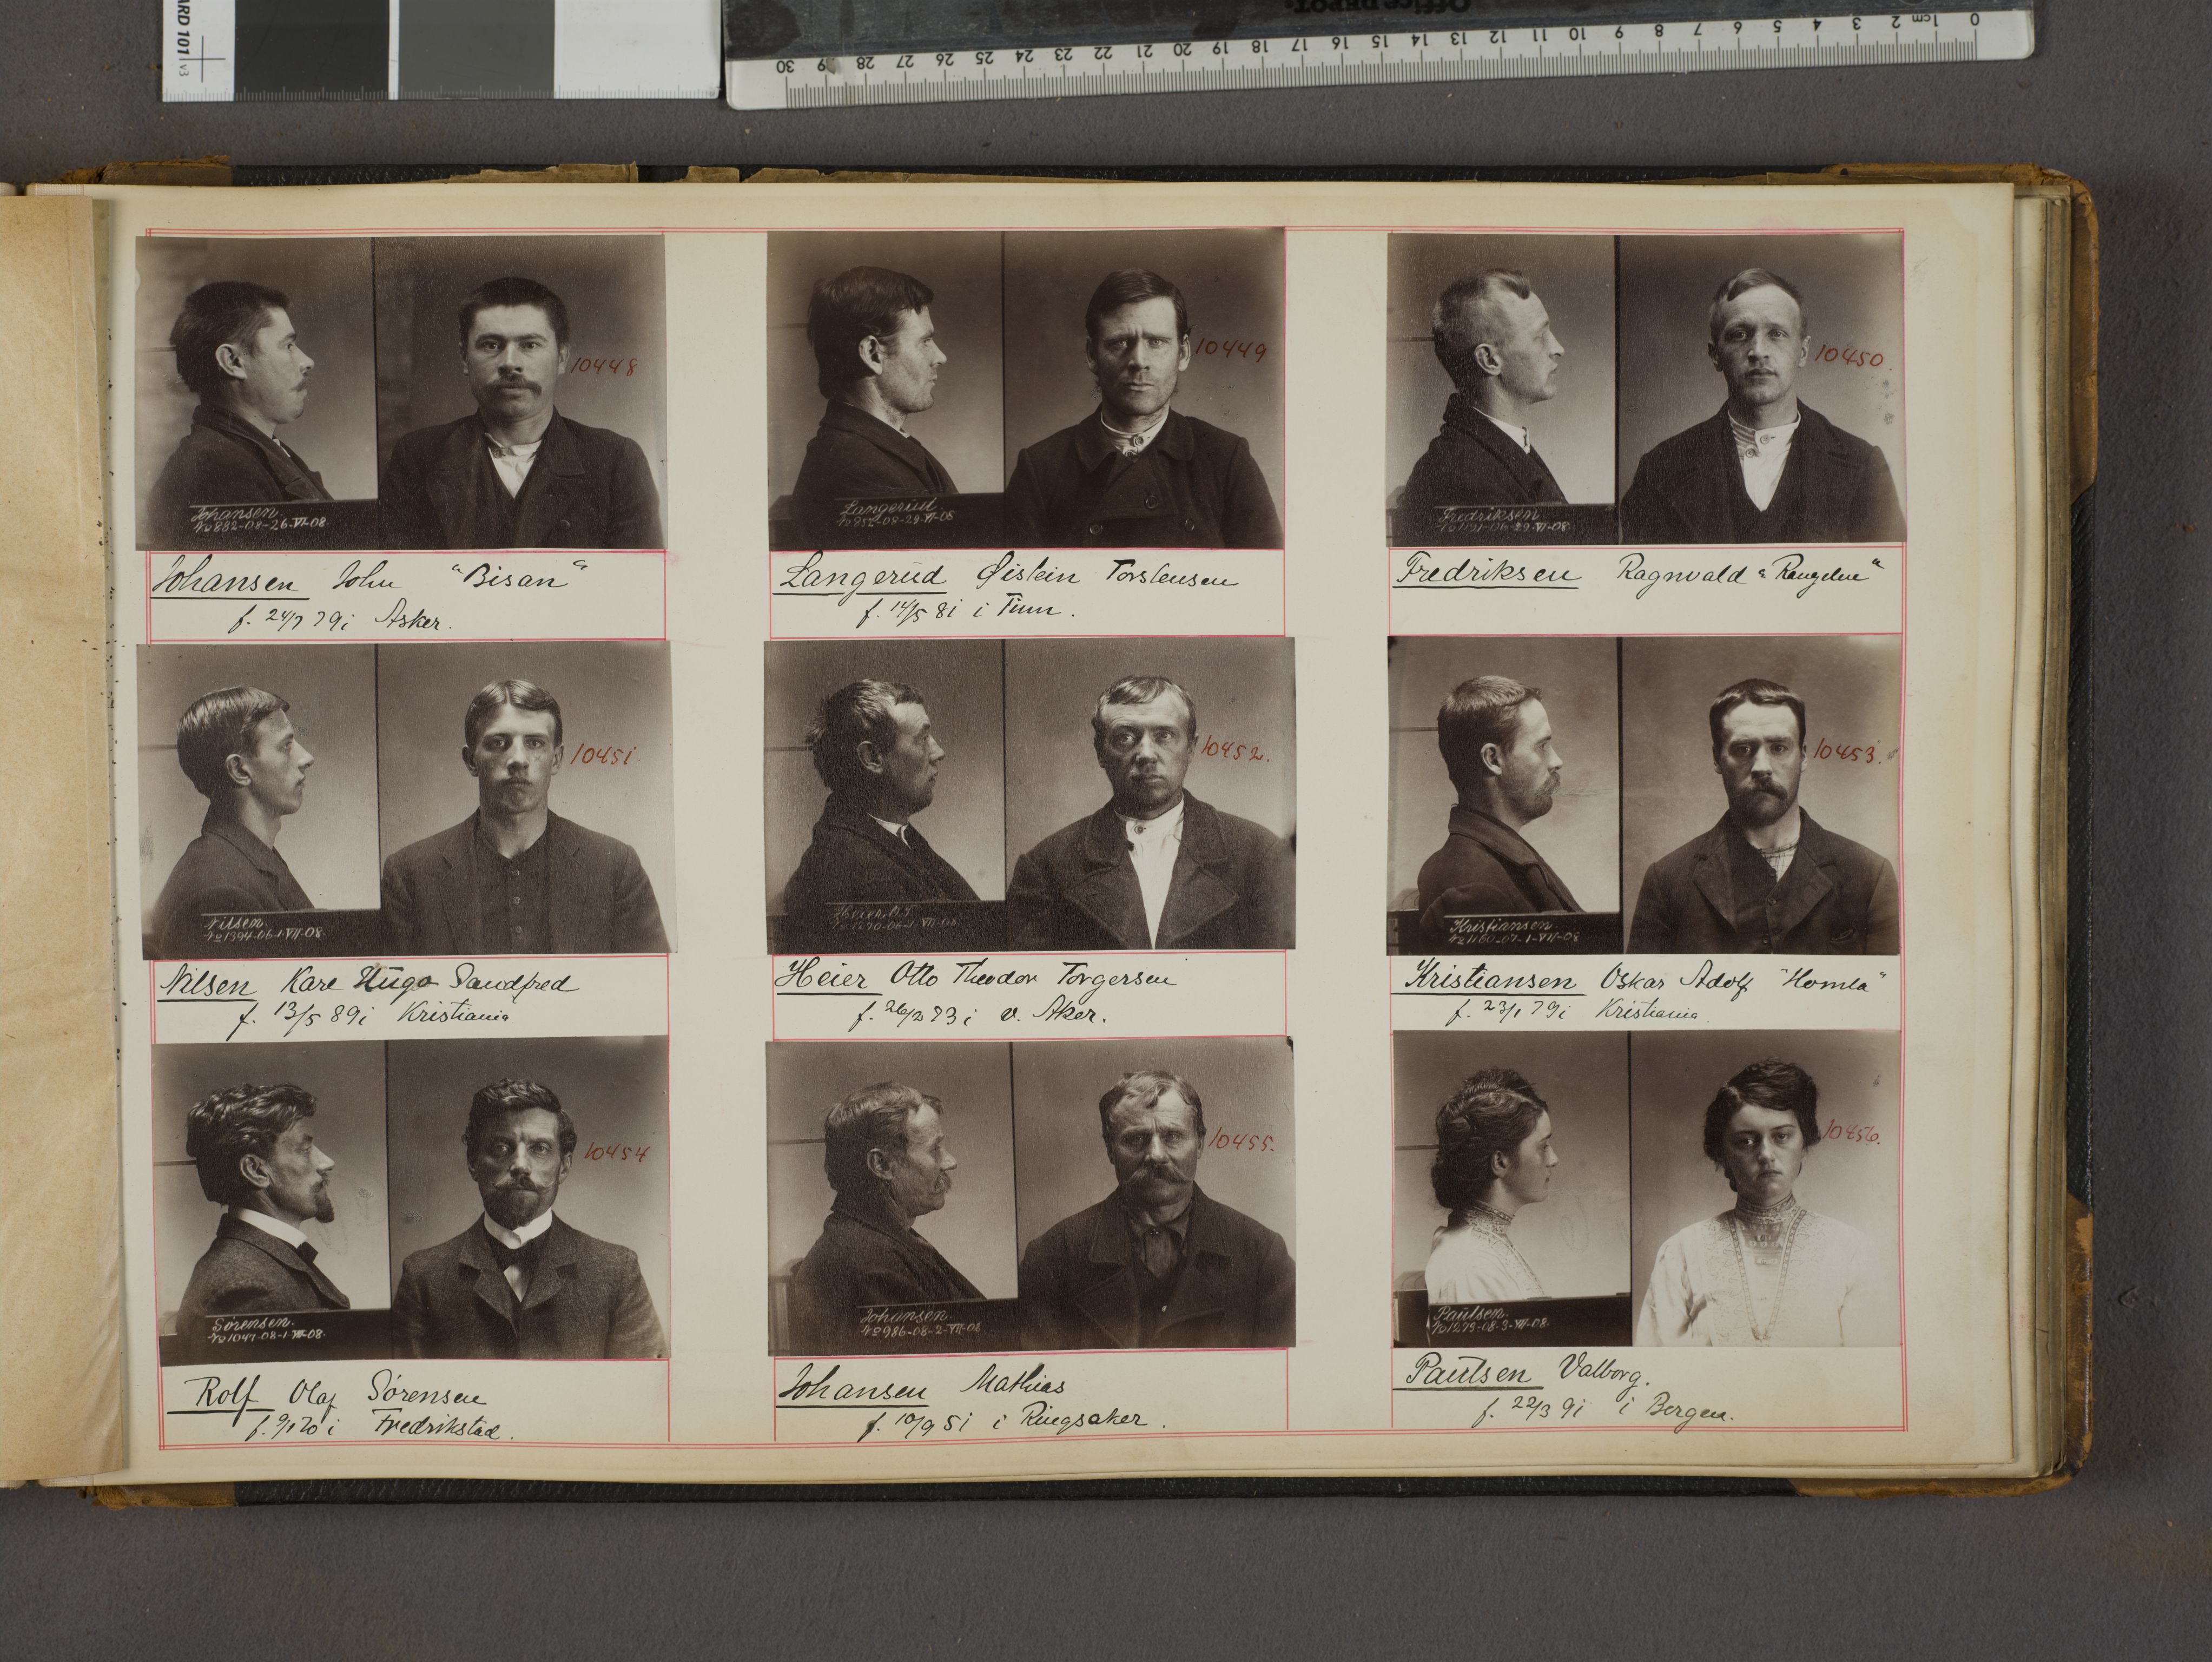 ARD 101 v3
Office DEPOT.
0 1cm 2 3 4 5 6 7 8 9 10 11 12 13 14 15 16 17 18 19 20 21 22 23 24 25 26 27 28 29 30
10448
Johansen.
No 882-08-26-VI-08
Johansen John "Bisan"
f. 24/7 79 i Asker.
10449
Langerud.
No 852-08-29-VI-08
Langerud Øistein Torstensen
f. 14/5 81 i Tinn.
10450.
Fredriksen
No 1191-06-29-VI-08
Fredriksen Ragnvald
10451
Nilsen.
No 1394-06-1-VII-08.
Nilsen Karl Hugo Sandfred
f. 13/5 89 i Kristiania
10452.
Heier, O.T.
No 1270-06-1-VII-08.
Heier Otto Theodor Torgersen
f. 26/2 73 i v. Aker.
10453.
Kristiansen
No 1160-07-1-VII-08
Kristiansen Oskar Adolf "Homla"
f. 23/1 79 i Kristiania
10454
Sørensen.
No 1047-08-1-VII-08.
Rolf Olaf Sørensen
f. 9/1 70 i Fredrikstad.
10455.
Johansen.
No 986-08-2-VII-08
Johansen Mathias
f. 10/9 51 i Ringsaker.
10456.
Paulsen.
No 1273-08-3-VII-08
Paulsen Valborg.
f. 22/3 91 i Bergen.